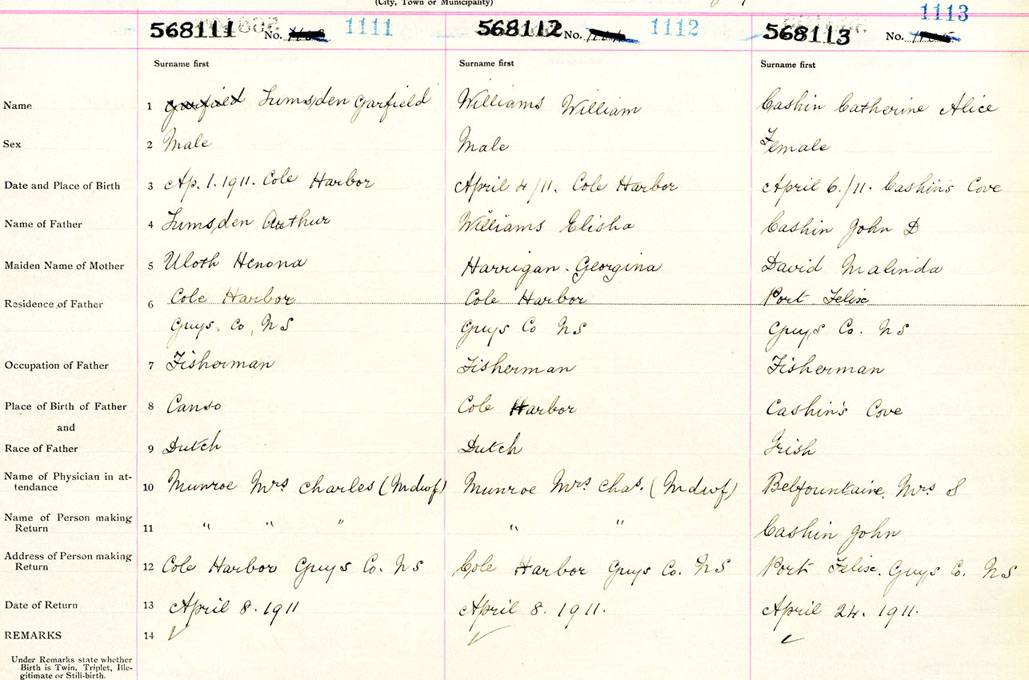 (City, Town or Municipality)
1113
568111 No. 1111 568112 No. 1112 568113 No.
Surname first Surname first Surname first
Name 1 Garfield Lumsden Garfield Williams William Cashin Catherine Alice
Sex 2 Male Male Female
Date and Place of Birth 3 Ap. 1. 1911. Cole Harbor April 4/11. Cole Harbor April 6./11. Cashin's Cove
Name of Father 4 Lumsden Arthur Williams Elisha Cashin John D
Maiden Name of Mother 5 Uloth Henona Harrigan - Georgina David Malinda
Residence of Father 6 Cole Harbor Cole Harbor Port Felix
Guys. Co, NS Guys Co NS Guys Co. NS
Occupation of Father 7 Fisherman Fisherman Fisherman
Place of Birth of Father 8 Canso Cole Harbor Cashin's Cove
and
Race of Father 9 Dutch Dutch Irish
Name of Physician in at- Munroe Mrs Charles (Mdwf) Munroe Mrs Chas. (Mdwf) Belfountaine, Mrs S
tendance 10
Name of Person making
Return 11 " " " " " Cashin John
Address of Person making
Return 12 Cole Harbor Guys Co. NS Cole Harbor Guys Co. NS Port Felix. Guys Co. NS
Date of Return 13 April 8. 1911 April 8. 1911. April 24. 1911.
REMARKS 14
Under Remarks state whether
Birth is Twin, Triplet, Ille-
gitimate or Still-birth.